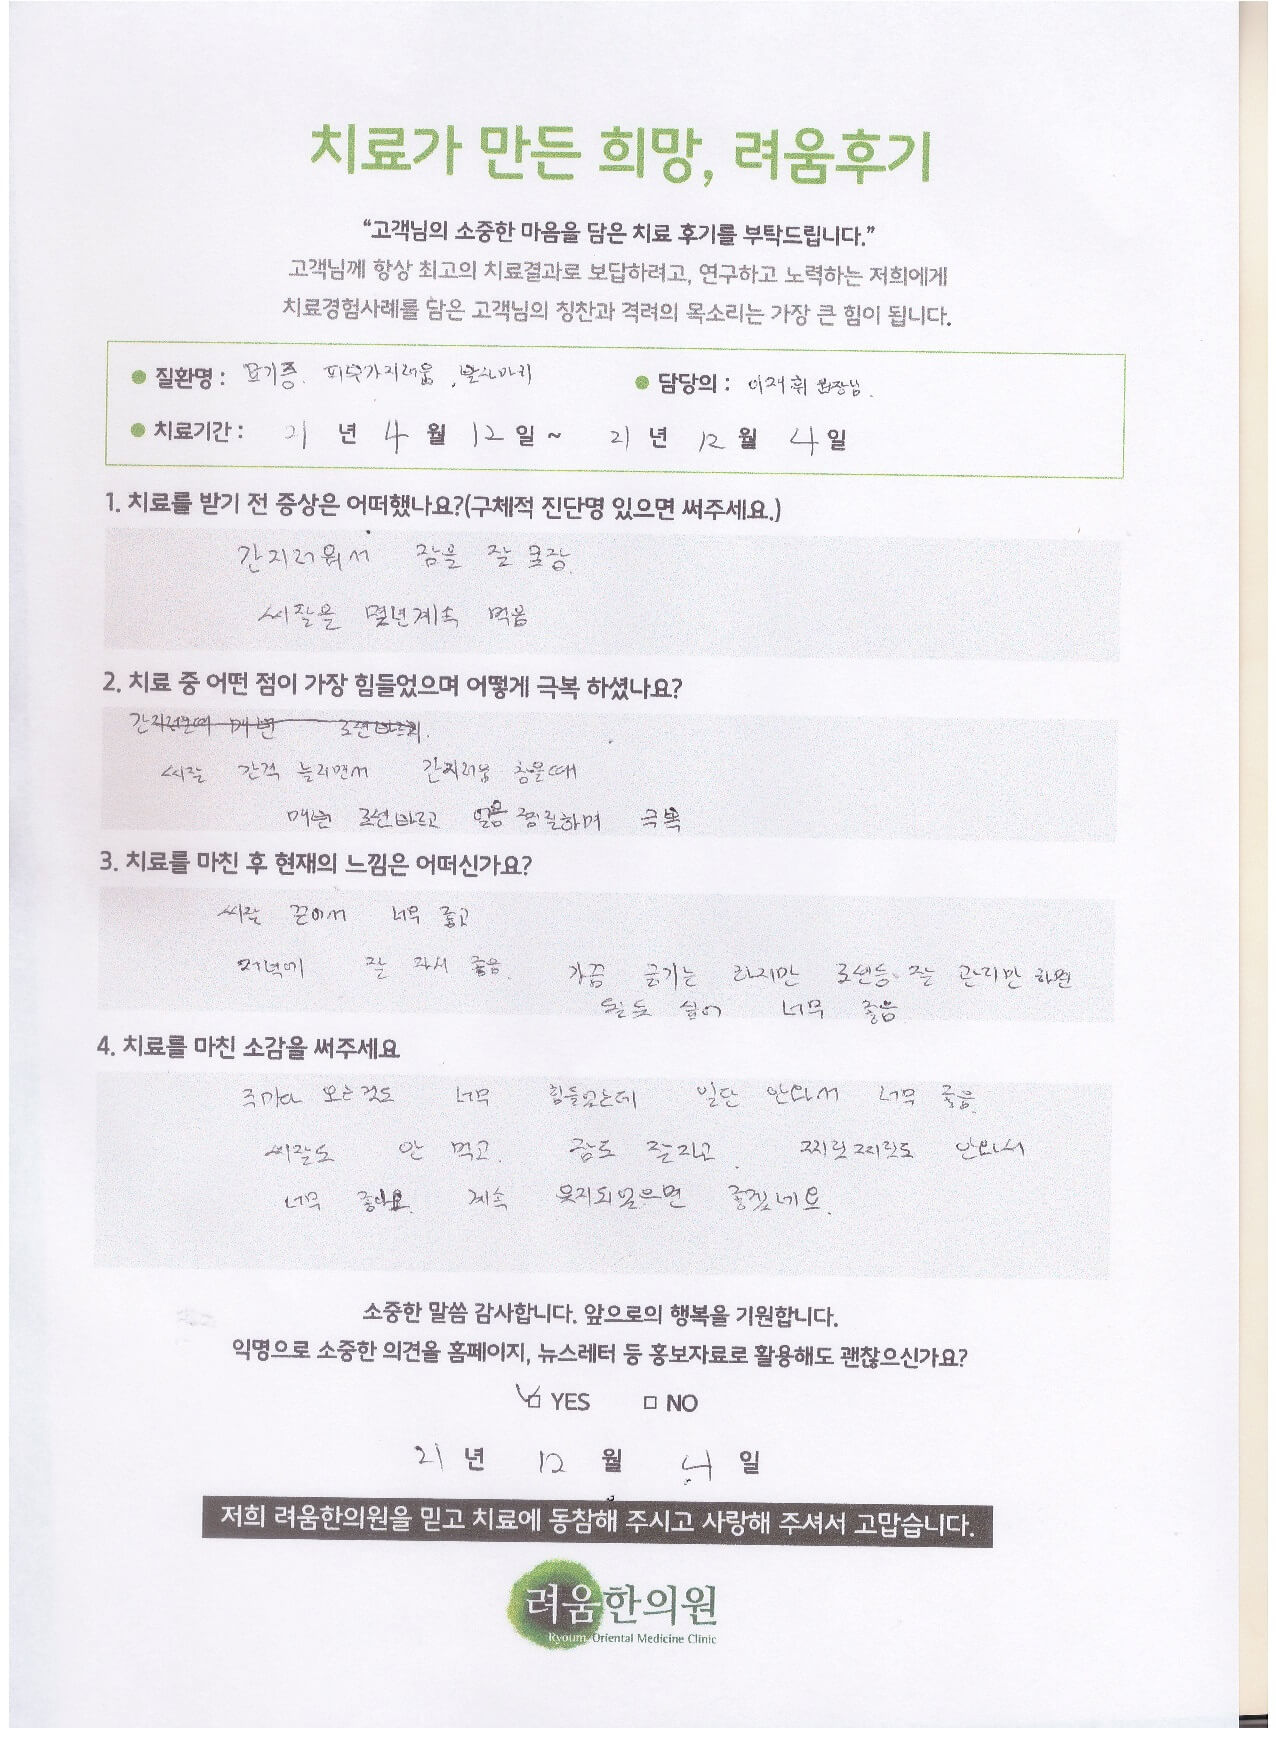 치료가 만든 희망, 려움후기
“고객님의 소중한 마음을 담은 치료 후기를 부탁드립니다.”
고객님께 항상 최고의 치료결과로 보답하려고, 연구하고 노력하는 저희에게
치료경험사례를 담은 고객님의 칭찬과 격려의 목소리는 가장 큰 힘이 됩니다.
질환명 : 묘기증. 피부가지러움, 담당의 : 이재휘 원장님.
치료기간 : 21 년 4 월 12 일 ~ 21 년 12 월 4 일
1. 치료를 받기 전 증상은 어떠했나요?(구체적 진단명 있으면 써주세요.)
간지러워서 잠을 잘 못잠.
씨잘을 몇년계속 먹음
2. 치료 중 어떤 점이 가장 힘들었으며 어떻게 극복 하셨나요?
씨잘 간격 늘리면서 간지러움 참을때
매번 로션바르고 얼음찜질하며 극복
3. 치료를 마친 후 현재의 느낌은 어떠신가요?
씨잘 끈어서 너무 좋고
저녁에 잘 자서 좋음. 가끔 긁기는 하지만 로션등 잘 관리만 하면
될듯 싶어 너무 좋음
4. 치료를 마친 소감을 써주세요
주마다 오는것도 너무 힘들었는데 일단 안와서 너무 좋음.
씨잘도 안 먹고. 잠도 잘자고. 찌릿찌릿도 안와서
너무 좋아요. 계속 유지되었으면 좋겠네요.
소중한 말씀 감사합니다. 앞으로의 행복을 기원합니다.
익명으로 소중한 의견을 홈페이지, 뉴스레터 등 홍보자료로 활용해도 괜찮으신가요?
YES NO
21 년 12 월 4 일
저희 려움한의원을 믿고 치료에 동참해 주시고 사랑해 주셔서 고맙습니다.
려움한의원
Ryoum Oriental Medicine Clinic